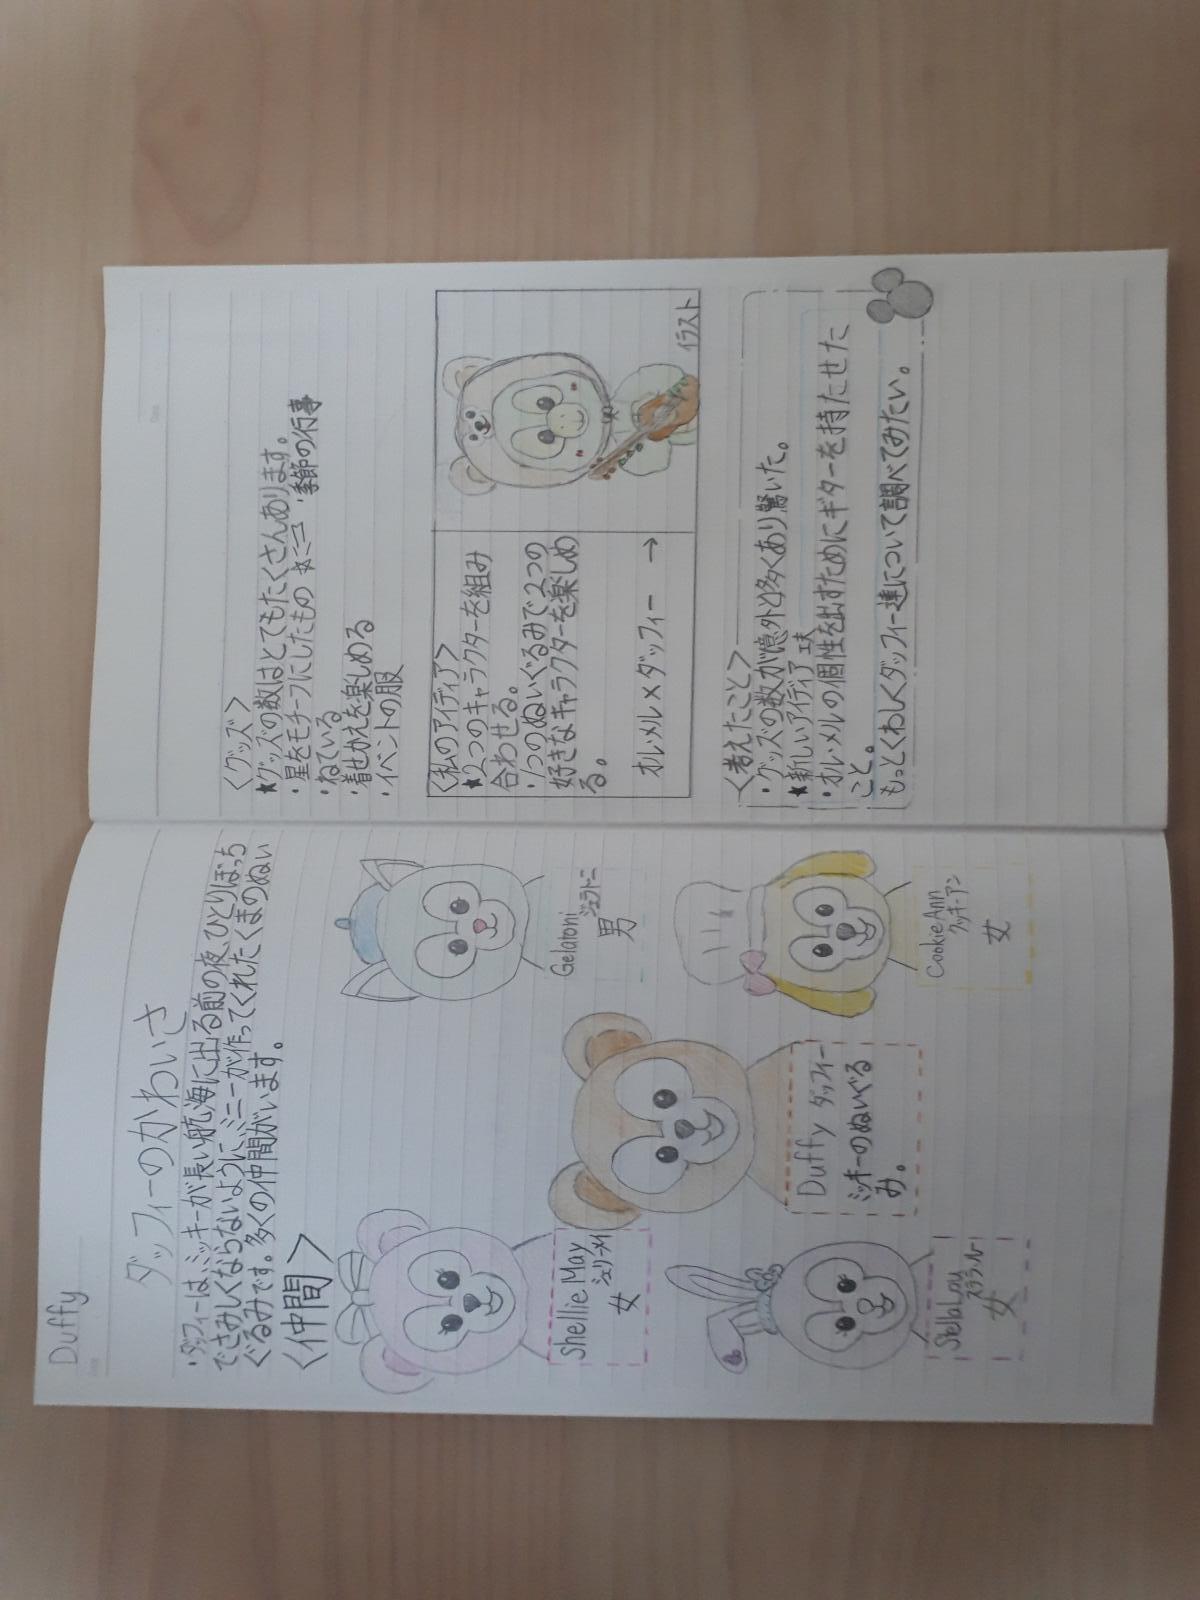 Duffy
ダッフィーのかわいさ
・ダッフィーは、ミッキーが長い航海に出る前の夜、ひとりぼっち
でさみしくならないように、ミニーが作ってくれたくまのぬい
ぐるみです。多くの仲間がいます。
<仲間>
Shellie May
シェリーメイ
女
Gelatoni
ジェラトーニ
男
Duffy ダッフィー
ミッキーのぬいぐる
み。
StellaLou
ステラ・ルー
女
CookieAnn
クッキー・アン
女
<グッズ>
★グッズの数はとてもたくさんあります。
・星をモチーフにしたもの ★ミニコ ・季節の行事
・ねている
・着せかえを楽しめる
・イベントの服
<私のアイディア>
★2つのキャラクターを組み
合わせる。
・1つのぬいぐるみで2つの
好きなキャラクターを楽しめ
る。
オル・メル×ダッフィー →
イラスト
<考えたこと>
・グッズの数が意外と多くあり驚いた。
★新しいアイディア
・オル・メルの個性を出すためにギターを持たせた
こと。
もっとくわしくダッフィー達について調べてみたい。